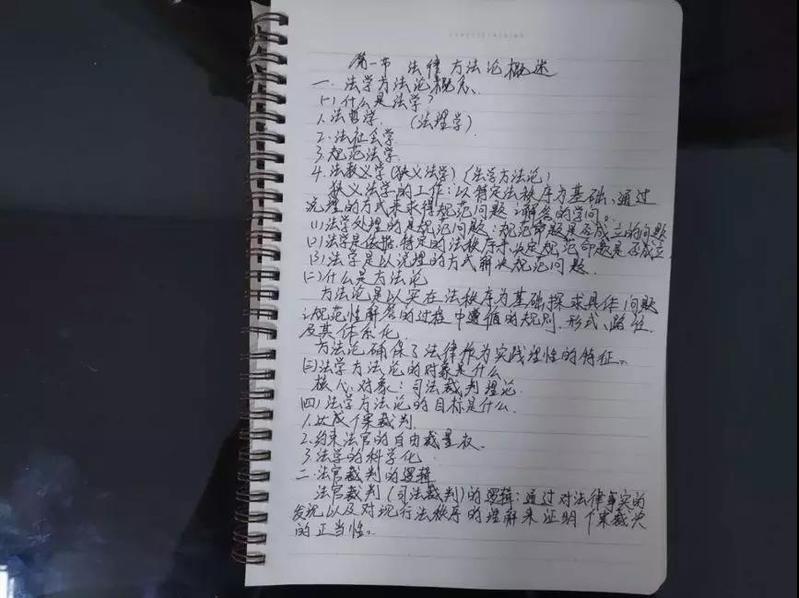 第一节 法律方法论概述
一.法学方法论概念
(一)什么是法学?
1.法哲学 (法理学)
2.法社会学
3.规范法学
4.法教义学(狭义法学)(法学方法论)
狭义法学的工作:以特定法秩序为基础,通过
说理的方式来求得规范问题之解答的学问。
(1)法学处理的是规范问题:规范命题是否成立的问题
(2)法学是依据特定的法秩序来决定规范命题是否成立
(3)法学是以说理的方式解决规范问题.
(二)什么是方法论
方法论是以实在法秩序为基础探求具体问题
之规范性解答的过程中遵循的规则、形式、路径
及其体系化.
方法论确保了法律作为实践理性的特征。
(三)法学方法论的对象是什么
核心对象:司法裁判理论
(四)法学方法论的目标是什么.
1.达成个案裁判.
2.约束法官的自由裁量权.
3.法学的科学化
二.法官裁判的逻辑
法官裁判(司法裁判)的逻辑:通过对法律事实的
发现以及对现行法秩序的理解来证明个案裁决
的正当性。